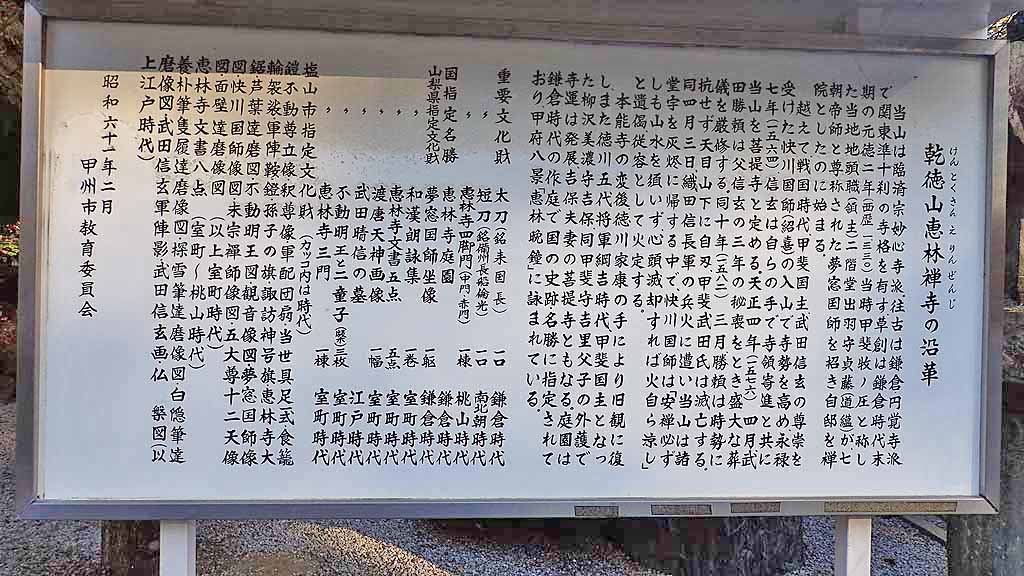 けんとくさん え りんぜんじ
乾徳山恵林禅寺の沿革
当山は臨済宗妙心寺派往古は鎌倉円覚寺派
で関東準十刹の寺格を有す草創は鎌倉時代末
期の元徳二年(西歴一三三〇)当時甲斐牧ノ庄と称し
た当地地頭職(領主二階堂出羽守貞藤道蘊が七
朝帝師と尊称された夢窓国師を招き自邸を禅
院としたのに始まる。
越えて戦国時代甲斐国主武田信玄の尊崇を
受けた快川国師(紹喜)の入山で寺勢を高め永禄
七年(一五六四)信玄は自らの手で寺領寄進と共に
当山を菩提寺と定める。天正四年(一五七六)四月武
田勝頼は父信玄の三年の秘喪をとき盛大な葬
儀を厳修する。同十年(一五八二)三月勝頼は時勢に
抗せず天目山下に自刃、甲斐武田氏は滅亡する。
同四月三日織田信長軍の兵火に遭い当山は諸
堂宇を灰燼に帰する中で、快川国師は「安禅必ず
しも山水を須いず、心頭滅却すれば火自ら涼し」
と遺偈従容として火定する。
本能寺の変後徳川家康の手により旧観に復
しまた徳川五代将軍綱吉時代、甲斐国主となっ
た柳沢美濃守吉保同甲斐守吉里父子の外護で
寺運は発展吉保夫妻の菩提寺ともなる庭園は
鎌倉時代の作庭で国の史跡名勝に指定されて
おり甲府八景「恵林晩鐘」に詠まれている。
重要文化財 太刀(銘来国長) 一口 鎌倉時代
〃 短刀(銘備州長船倫光) 一口 南北朝時代
〃 恵林寺四脚門(中門、赤門) 一棟 桃山時代
国指定名勝 恵林寺庭園 鎌倉時代
山梨県指定文化財 夢窓国師坐像 一躯 鎌倉時代
〃 和漢朗詠集 一巻 室町時代
〃 恵林寺文書五点 五点 室町時代
〃 渡唐天神画像 一幅 室町時代
〃 武田晴信の墓 江戸時代
〃 不動明王二童子 三枚 室町時代
〃 恵林寺三門 一棟 室町時代
塩山市指定文化財 (カッコ内は時代)
鎧不動尊立像釈尊像軍配団扇当世具足(式食籠
輪袈裟軍陣鞍鐙孫子の旗・諏訪神号旗恵林寺大
鋸芦葉達磨図不動明王図観音像図夢窓国師像
図快川国師像図末宗禅師像図五大尊十二天像
図・面壁達磨図(以上室町時代)
恵林寺文書八点 (室町〜桃山時代)
養朴筆隻履達磨像図探雪筆達磨像図・白隠筆達
磨像図武田信玄軍陣影武田信玄画仏 祭図以
上江戸時代)
昭和六十一年二月
甲州市教育委員会